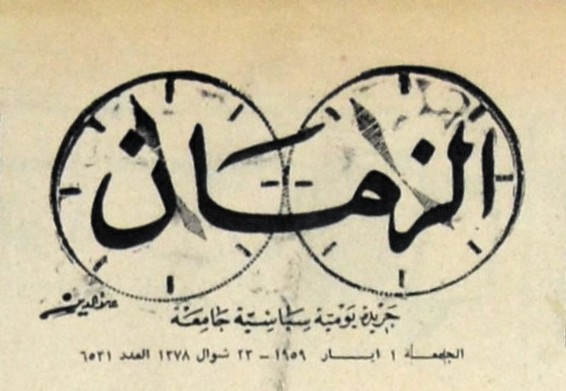 الزمان
جريدة يومية سياسية جامعة
الجمعة ١ ايار ١٩٥٩ - ٢٣ شوال ١٣٧٨ العدد ٦٥٣١